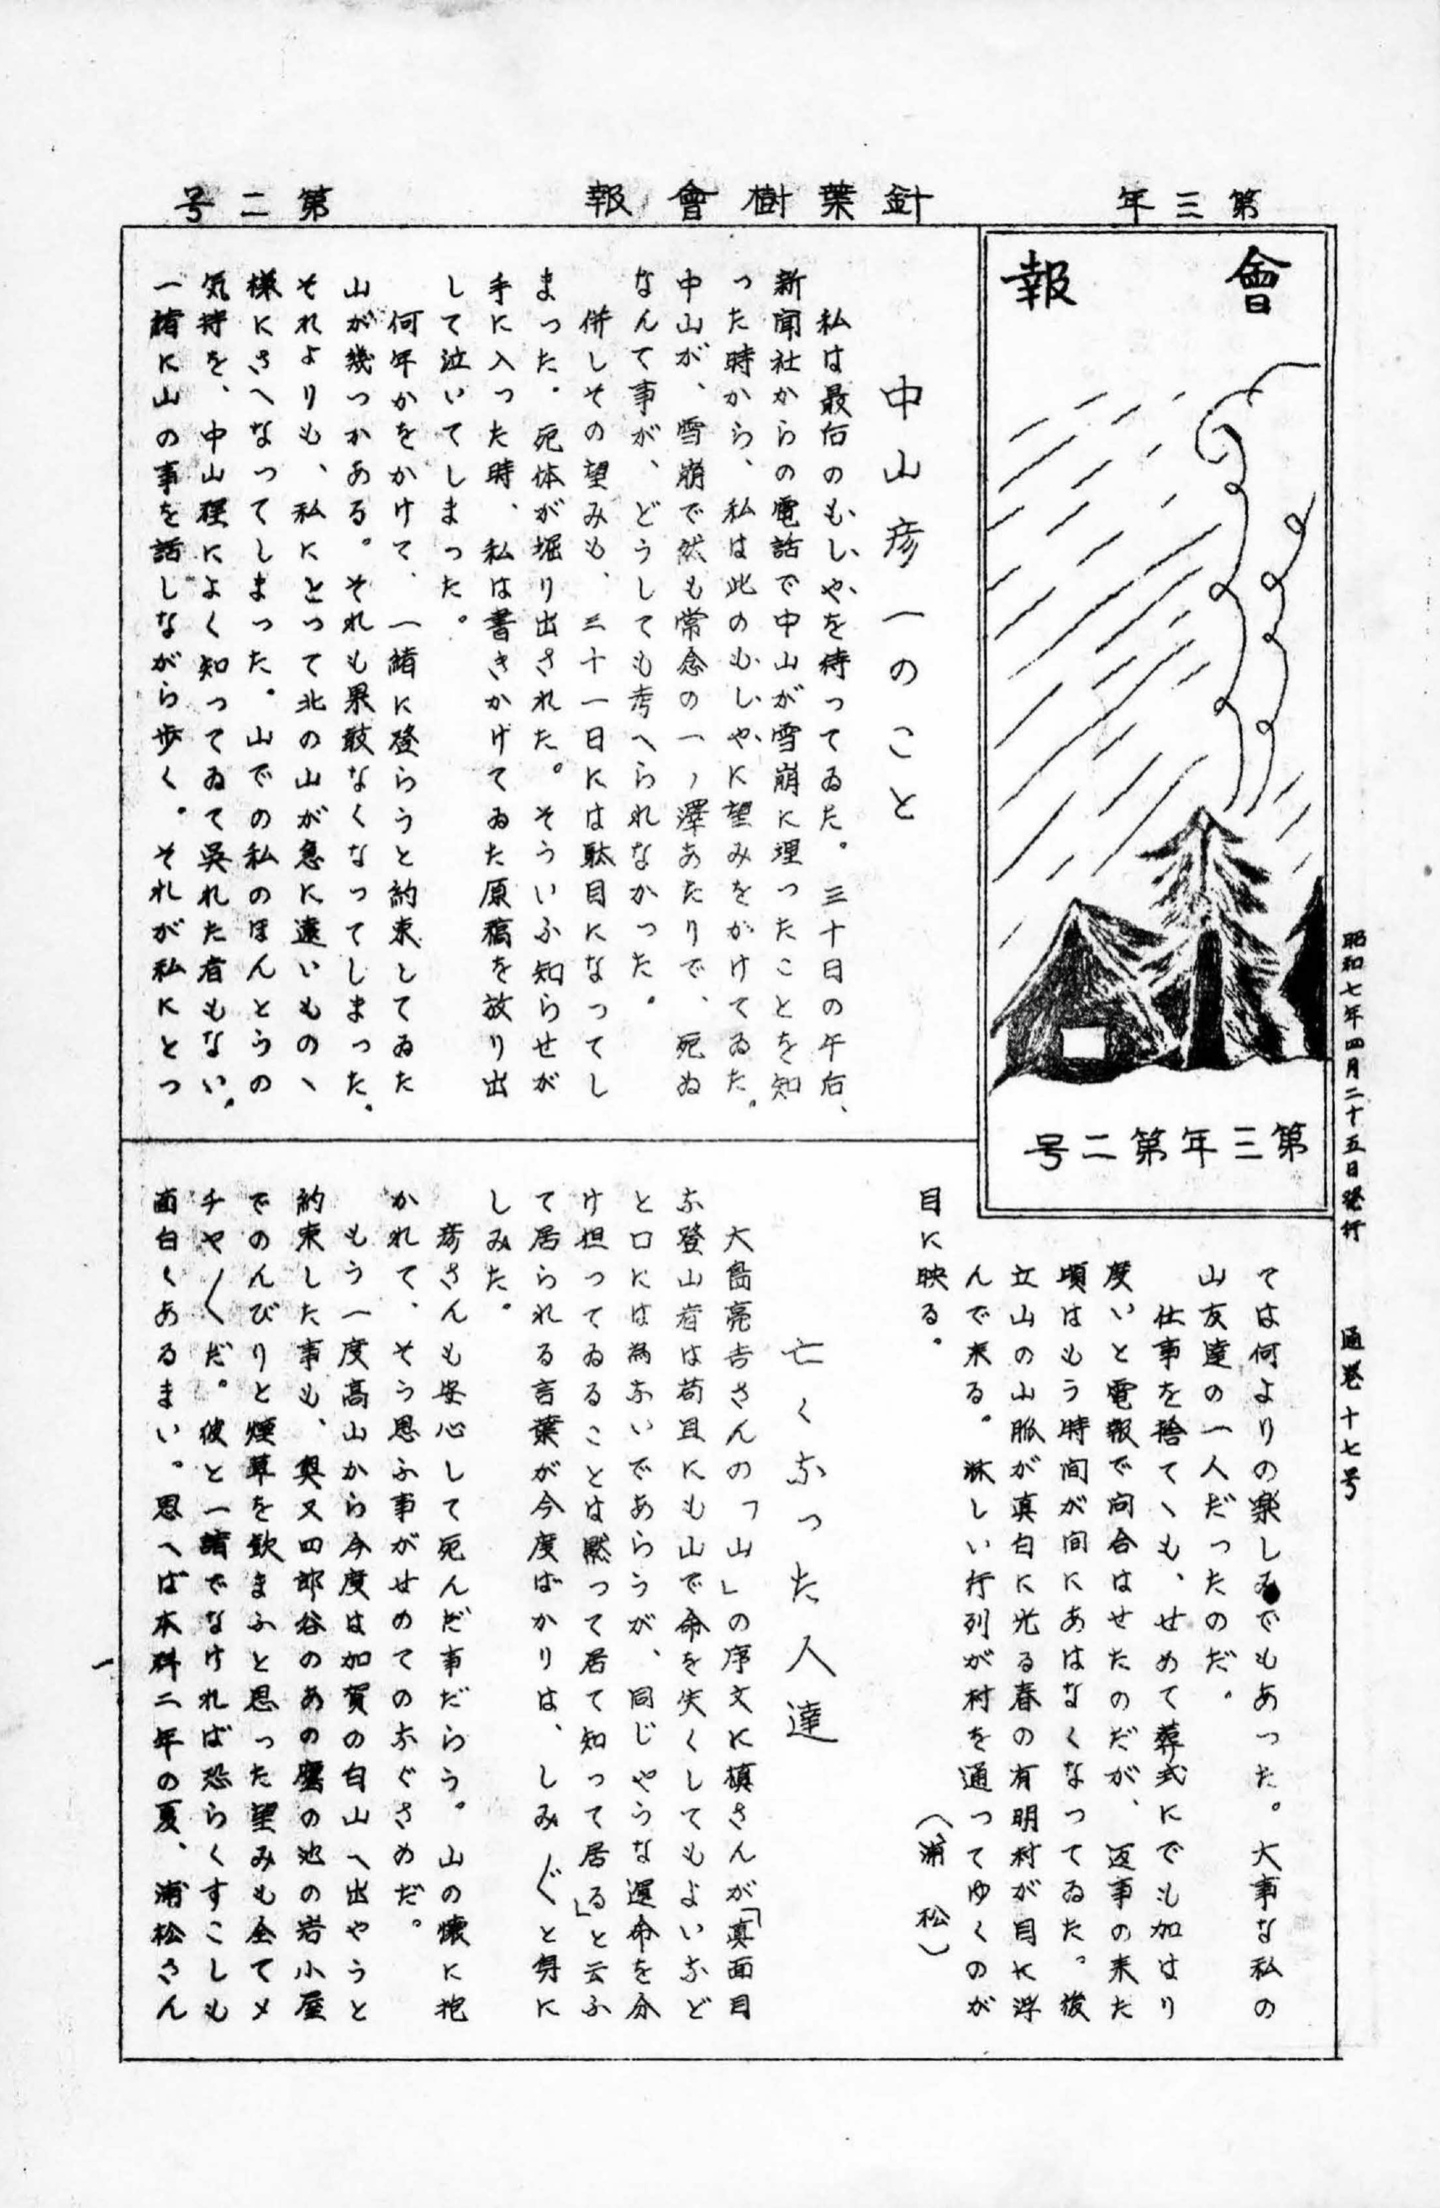 第三年
針葉樹會報
第二号
會報
第三年第二号
昭和七年四月二十五日発行 通巻十七号
中山彦一のこと
私は最后のもしやを待ってゐた。三十日の午后、
新聞社からの電話で中山が雪崩に埋ったことを知
った時から、私は此のもしやに望みをかけてゐた。
中山が、雪崩で然も常念の一ノ澤あたりで、死ぬ
なんて事が、どうしても考へられなかった。
併しその望みも、三十一日には駄目になってし
まった。死体が堀り出された。そういふ知らせが
手に入った時、私は書きかけてゐた原稿を放り出
して泣いてしまった。
何年かをかけて、一緒に登らうと約束してゐた
山が幾つかある。それも果敢なくなってしまった。
それよりも、私にとって北の山が急に遠いものゝ
様にさへなってしまった。山での私のほんとうの
気持を、中山程によく知ってゐて呉れた者もない。
一緒に山の事を話しながら歩く。それが私にとっ
ては何よりの楽しみでもあった。大事な私の
山友達の一人だったのだ。
仕事を捨てゝも、せめて葬式にでも加はり
度いと電報で問合はせたのだが、返事の来た
頃はもう時間が間にあはなくなってゐた。後
立山の山脈が真白に光る春の有明村が目に浮
んで来る。淋しい行列が村を通ってゆくのが
目に映る。
（浦松）
亡くなった人達
大島亮吉さんの「山」の序文に槇さんが「真面目
な登山者は苟且にも山で命を失くしてもよいなど
と口には為ないであらうが、同じやうな運命を分
け担ってゐることは黙って居て知って居る」と云ふ
て居られる言葉が今度ばかりは、しみ〲と身に
しみた。
彦さんも安心して死んだ事だらう。山の懐に抱
かれて、そう思ふ事がせめてのなぐさめだ。
もう一度高山から今度は加賀の白山へ出やうと
約束した事も、奥又四郎谷のあの鷹の池の岩小屋
でのんびりと煙草を飲まふと思った望みも全てメ
チャ〱だ。彼と一諸でなければ恐らくすこしも
面白くあるまい。思へば本科二年の夏、浦松さん
一